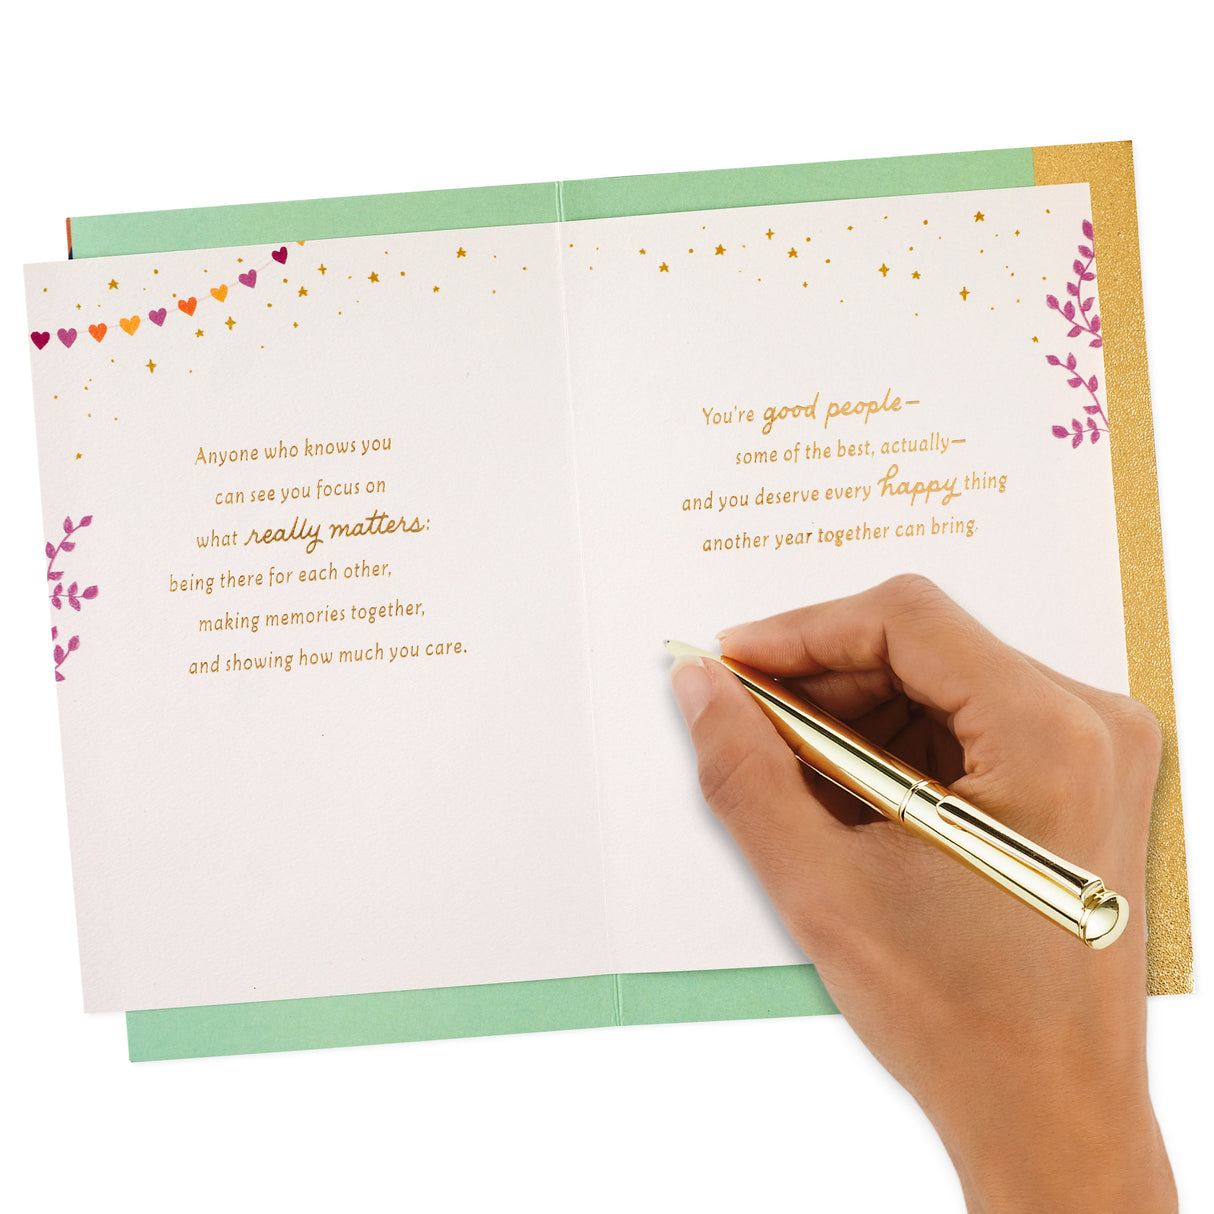 Anyone who knows you
can see you focus on
what really matters:
being there for each other,
making memories together,
and showing how much you care.
You're good people—
some of the best, actually—
and you deserve every happy thing
another year together can bring.